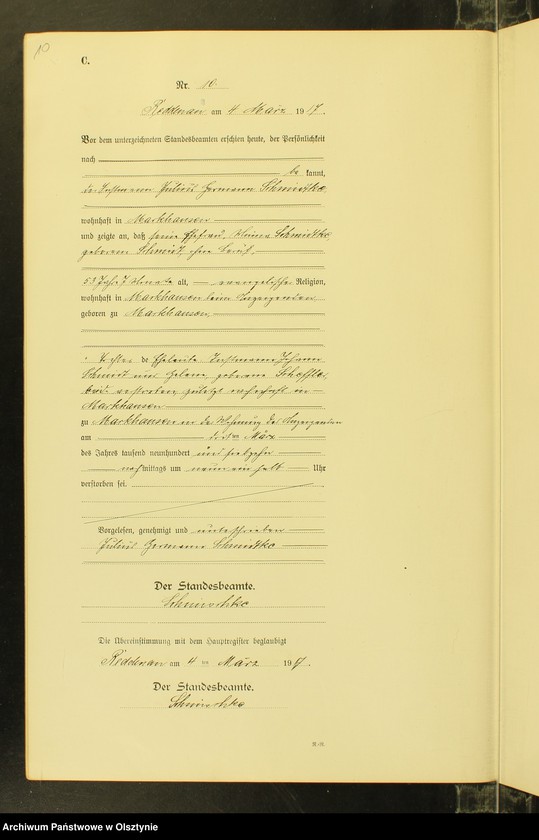 10
C.
Nr. 10.
Reddenau am 4 März 1917.
Vor dem unterzeichneten Standesbeamten erschien heute, der Persönlichkeit
nach
be kannt,
der Instmann Julius Hermann Schmidtke,
wohnhaft in Markhausen
und zeigte an, daß seine Ehefrau, Schmidtke,
geborene Schmidt, ohne Beruf,
53 Jahre 7 Monate alt, evangelischer Religion,
wohnhaft in Markhausen beim Anzeigenden
geboren zu Markhausen,
Tochter de Eheleute Instmann Johann
Schmidt und geborene
beide verstorben zuletzt wohnhaft in
Markhausen
zu Markhausen in der Wohnung des Anzeigenden
am März
des Jahres tausend neunhundert und siebzehn
nachmittags um neun ein halb Uhr
verstorben sei.
Vorgelesen, genehmigt und unterschrieben
Julius Hermann Schmidtke
Der Standesbeamte.
Die Übereinstimmung mit dem Hauptregister beglaubigt
Reddenau am 4 ten März 1917.
Der Standesbeamte.
Archiwum Państwowe w Olsztynie